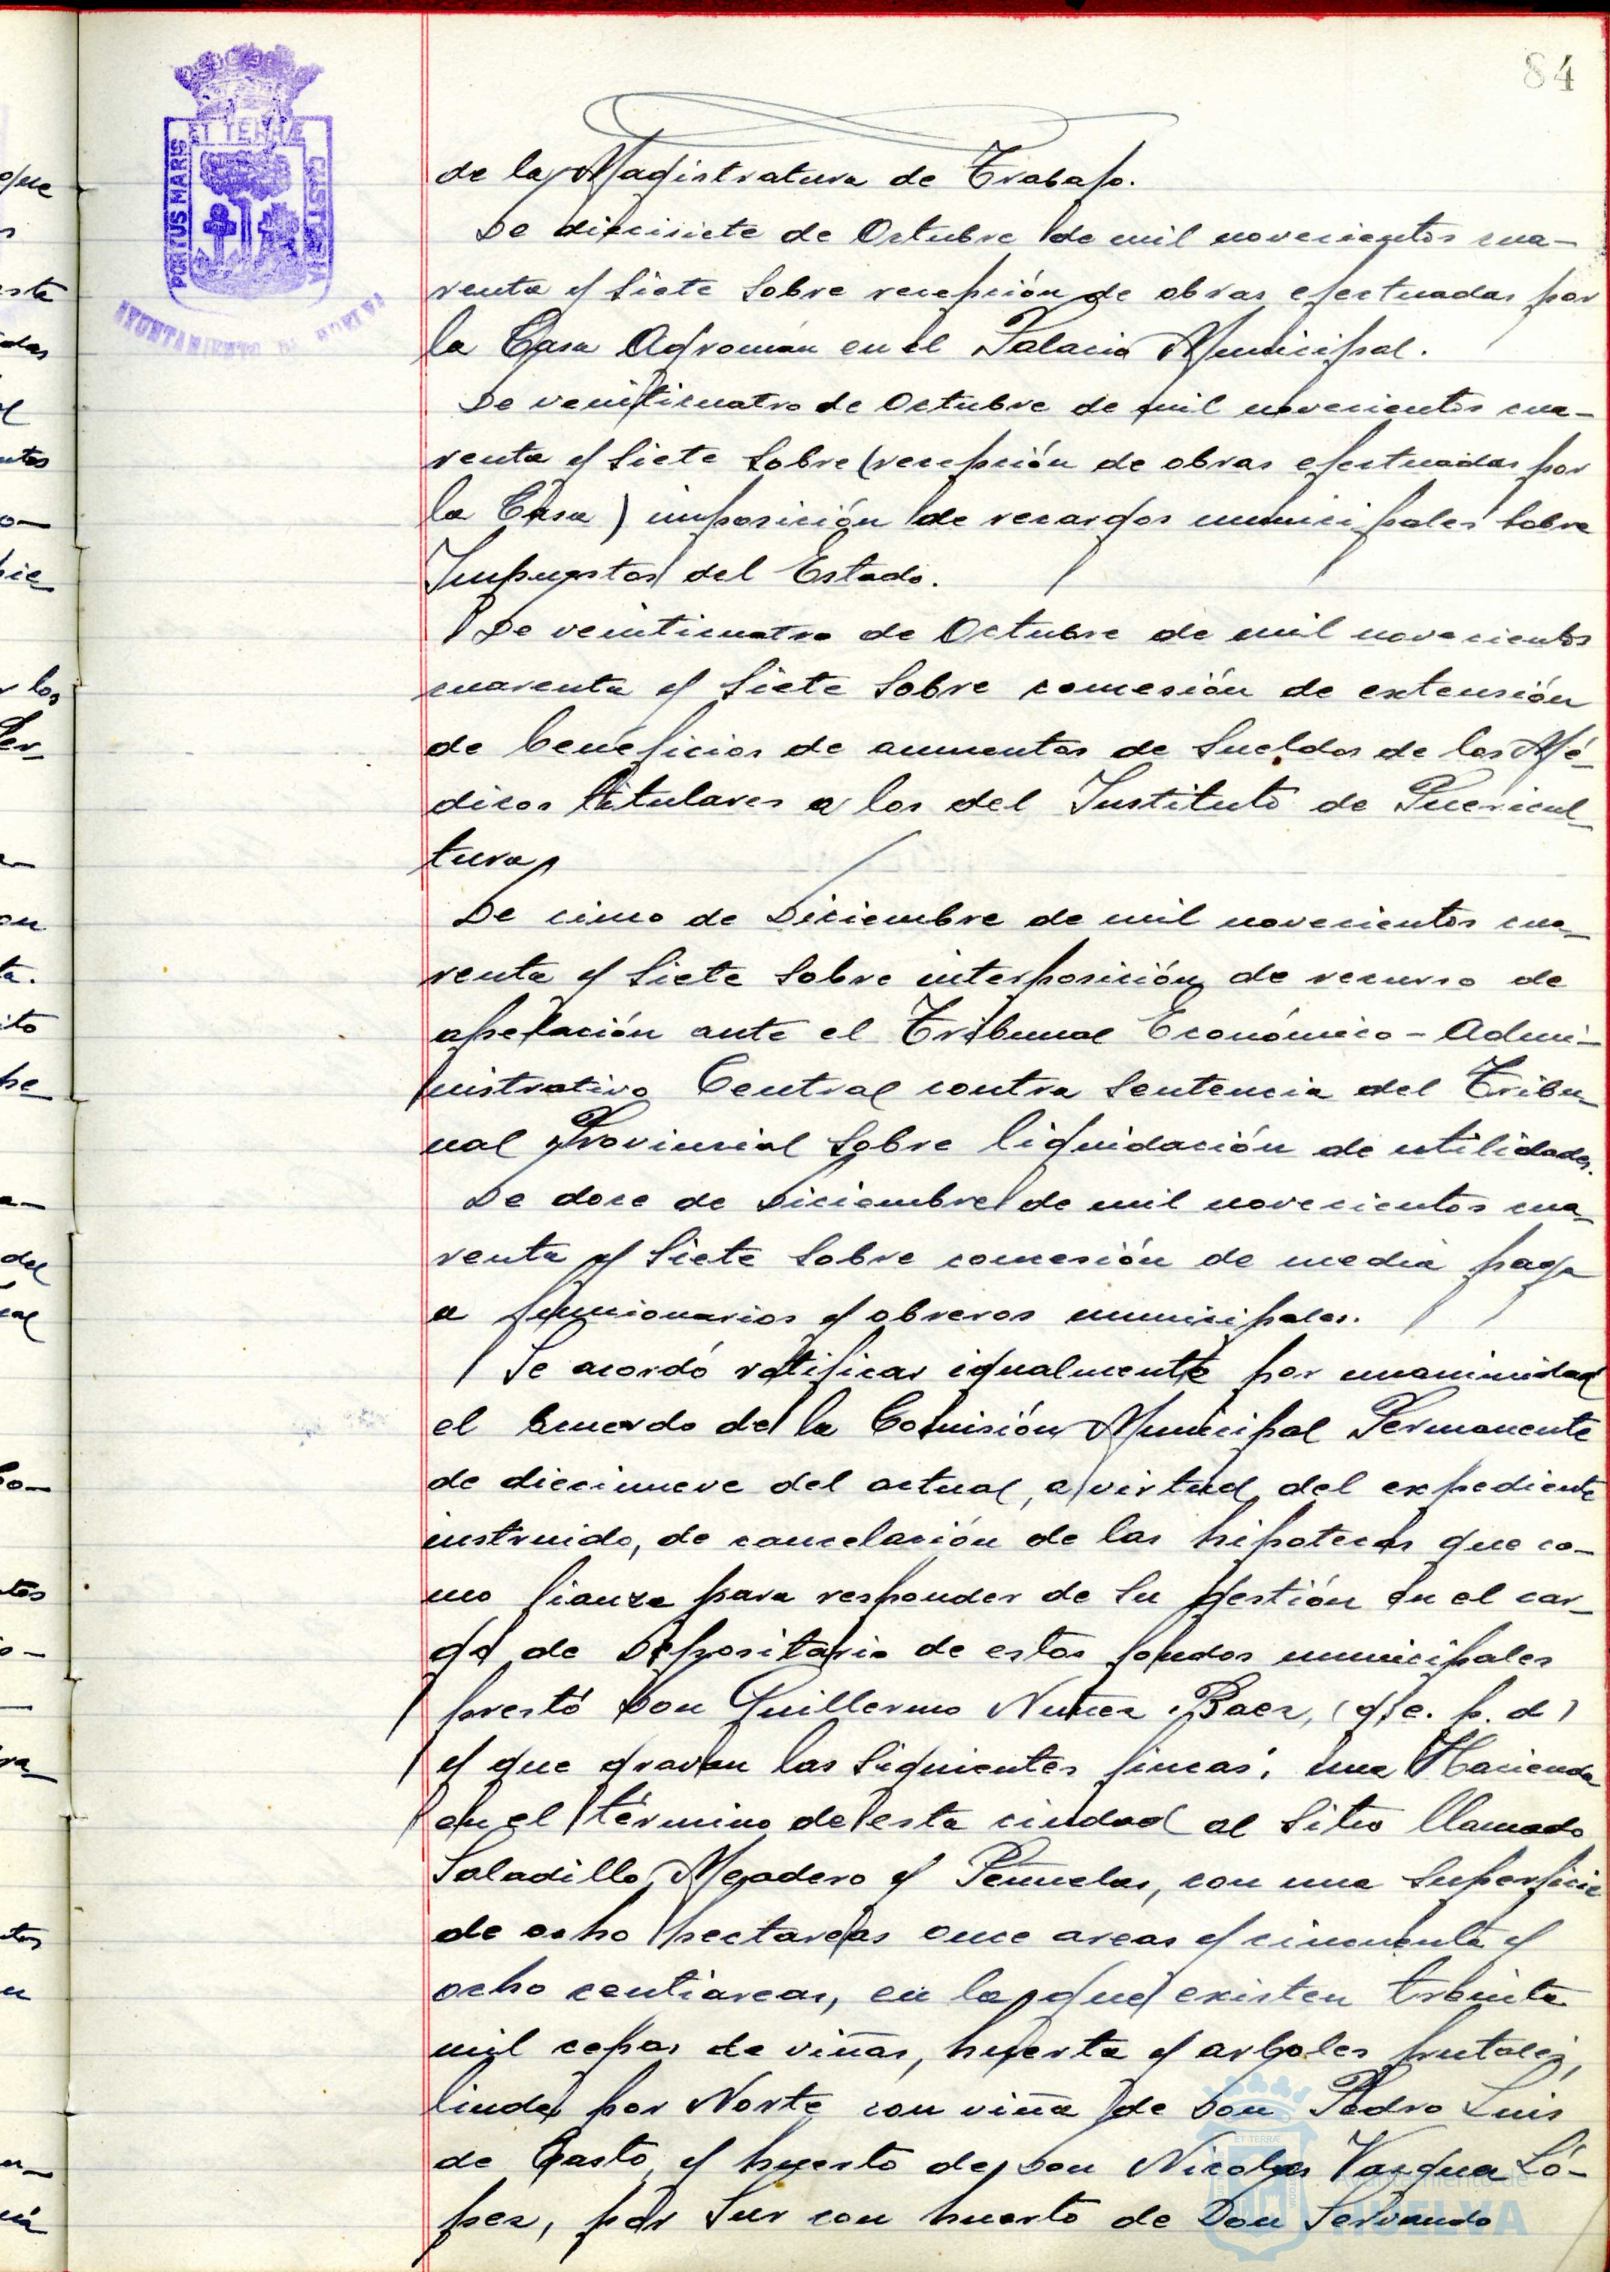 84
PORTUS MARIS ET TERRÆ CUSTODIA
AYUNTAMIENTO DE HUELVA
de la Magistratura de Trabajo.
De diecisiete de Octubre de mil novecientos cua-
renta y siete sobre recepción de obras efectuadas por
la Casa Agroman en el Palacio Municipal.
De veinticuatro de Octubre de mil novecientos cua-
renta y siete sobre (recepción de obras efectuadas por
la Casa) imposición de recargos municipales sobre
Impuestos del Estado.
De veinticuatro de Octubre de mil novecientos
cuarenta y siete sobre concesión de extensión
de beneficios de aumentos de sueldos de los Mé-
dicos titulares a los del Instituto de Puericul-
tura,
De cinco de Diciembre de mil novecientos cua-
renta y siete sobre interposición de recurso de
apelación ante el Tribunal Económico-Admi-
nistrativo Central contra sentencia del Tribu-
nal Provincial sobre liquidación de utilidades.
De doce de Diciembre de mil novecientos cua-
renta y siete sobre concesión de media paga
a funcionarios y obreros municipales.
Se acordó ratificar igualmente por unanimidad
el acuerdo de la Comisión Municipal Permanente
de diecinueve del actual, a virtud del expediente
instruido, de cancelación de las hipotecas que co-
mo fianza para responder de su gestión en el car-
go de Depositario de estos fondos municipales
prestó Don Guillermo Nuñez Baez, (q. e. p. d)
y que gravan las siguientes fincas: una Hacienda
en el término de esta ciudad al sitio llamado
Saladillo, Meadero y Peñuelas, con una superficie
de ocho hectareas once areas y cincuenta y
ocho centiareas, en la que existen treinta
mil cepas de viñas, huerta y arboles frutales,
linda por Norte con viña de Don Pedro Luis
de Casto y huerto de Don Nicolas Vazquez Ló-
pez, por Sur con huerto de Don Servando
Ayuntamiento de
HUELVA